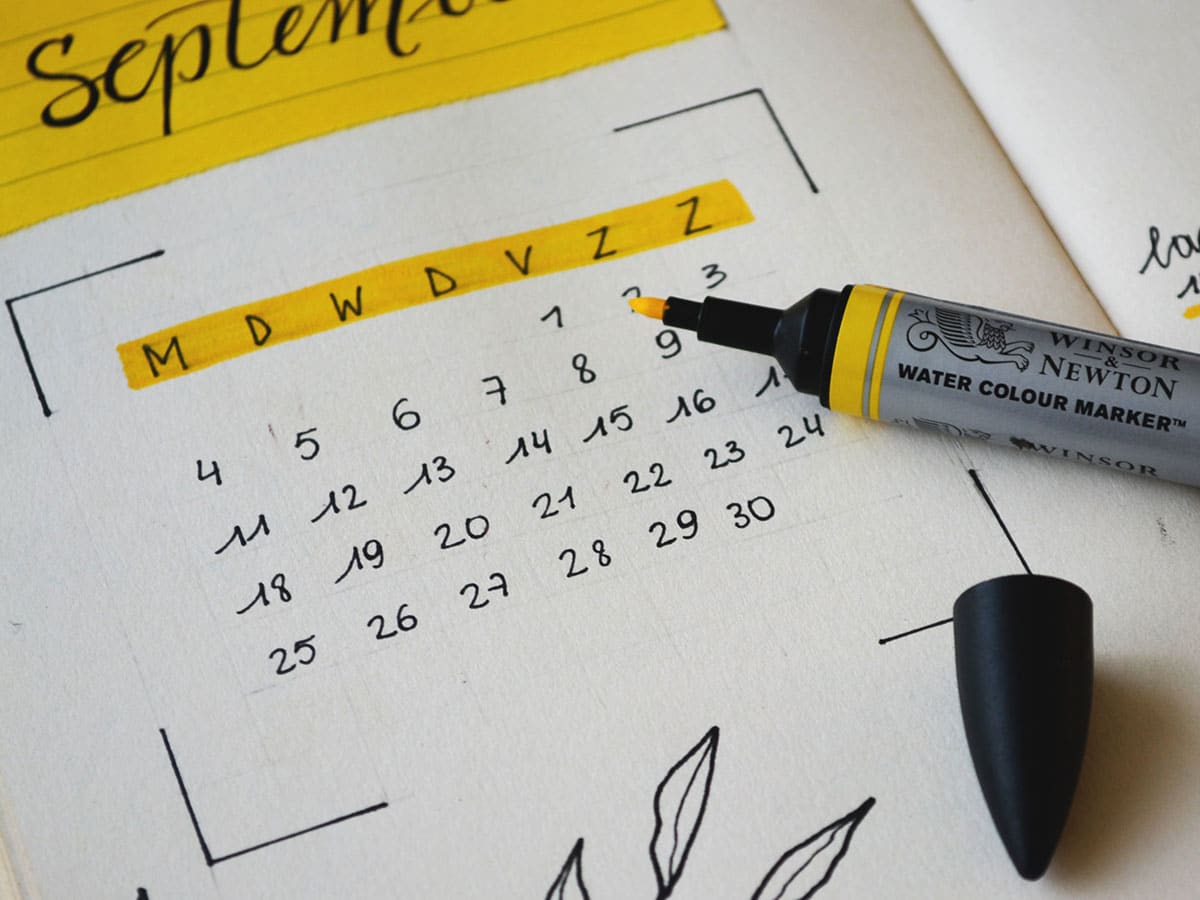 Septem
M D W D V Z Z
1 2 3
4 5 6 7 8 9
11 12 13 14 15 16
18 19 20 21 22 23 24
25 26 27 28 29 30
WINSOR
&
NEWTON
WATER COLOUR MARKER™
WINSOR